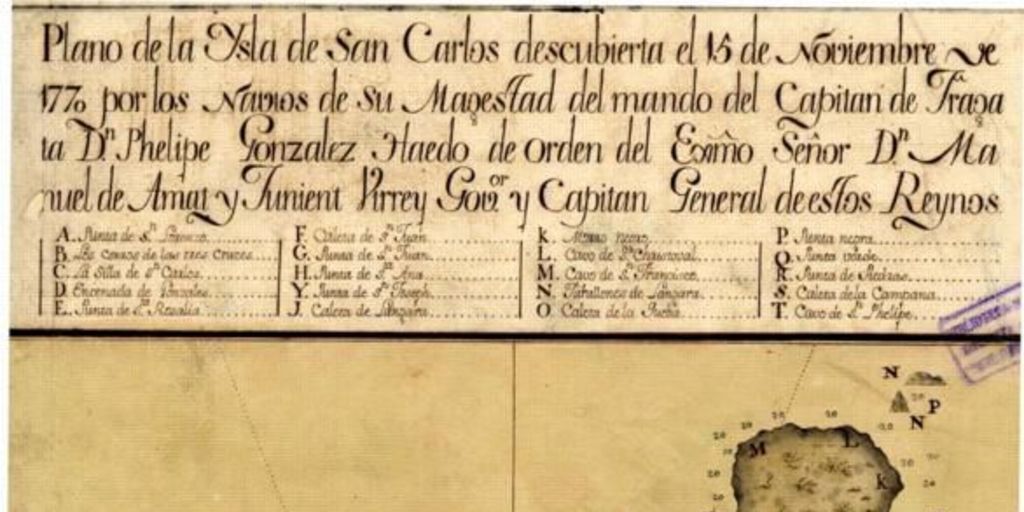 Plano de la Ysla de San Carlos descubierta el 15 de Noviembre de
1770 por los Navios de Su Magestad del mando del Capitan de Fraga
ta D.n Phelipe Gonzalez Haedo de orden del Exmo Señor D.n Ma
nuel de Amat y Junient Virrey Gov.or y Capitan General de estos Reynos
A. Punta de S.n Lorenzo
B. Los Cerros de las tres Cruces
C. La Silla de S.n Carlos
D. Encenada de Gonzales
E. Punta de S.ta Rosalia
F. Caleta de S.n Juan
G. Punta de S.n Juan
H. Punta de S.ta Ana
Y. Punta de S.n Joseph
J. Caleta de Langara
K. Morro negro
L. Cavo de S.n Christoval
M. Cavo de S.n Francisco
N. Farallones de Langara
O. Caleta de la
P. Punta negra
Q. Punta
R. Punta de Piedras
S. Caleta de la Campana
T. Cavo de S.n Phelipe
N
P
N
20
20
20
20
M
L
K
20
20
20
20